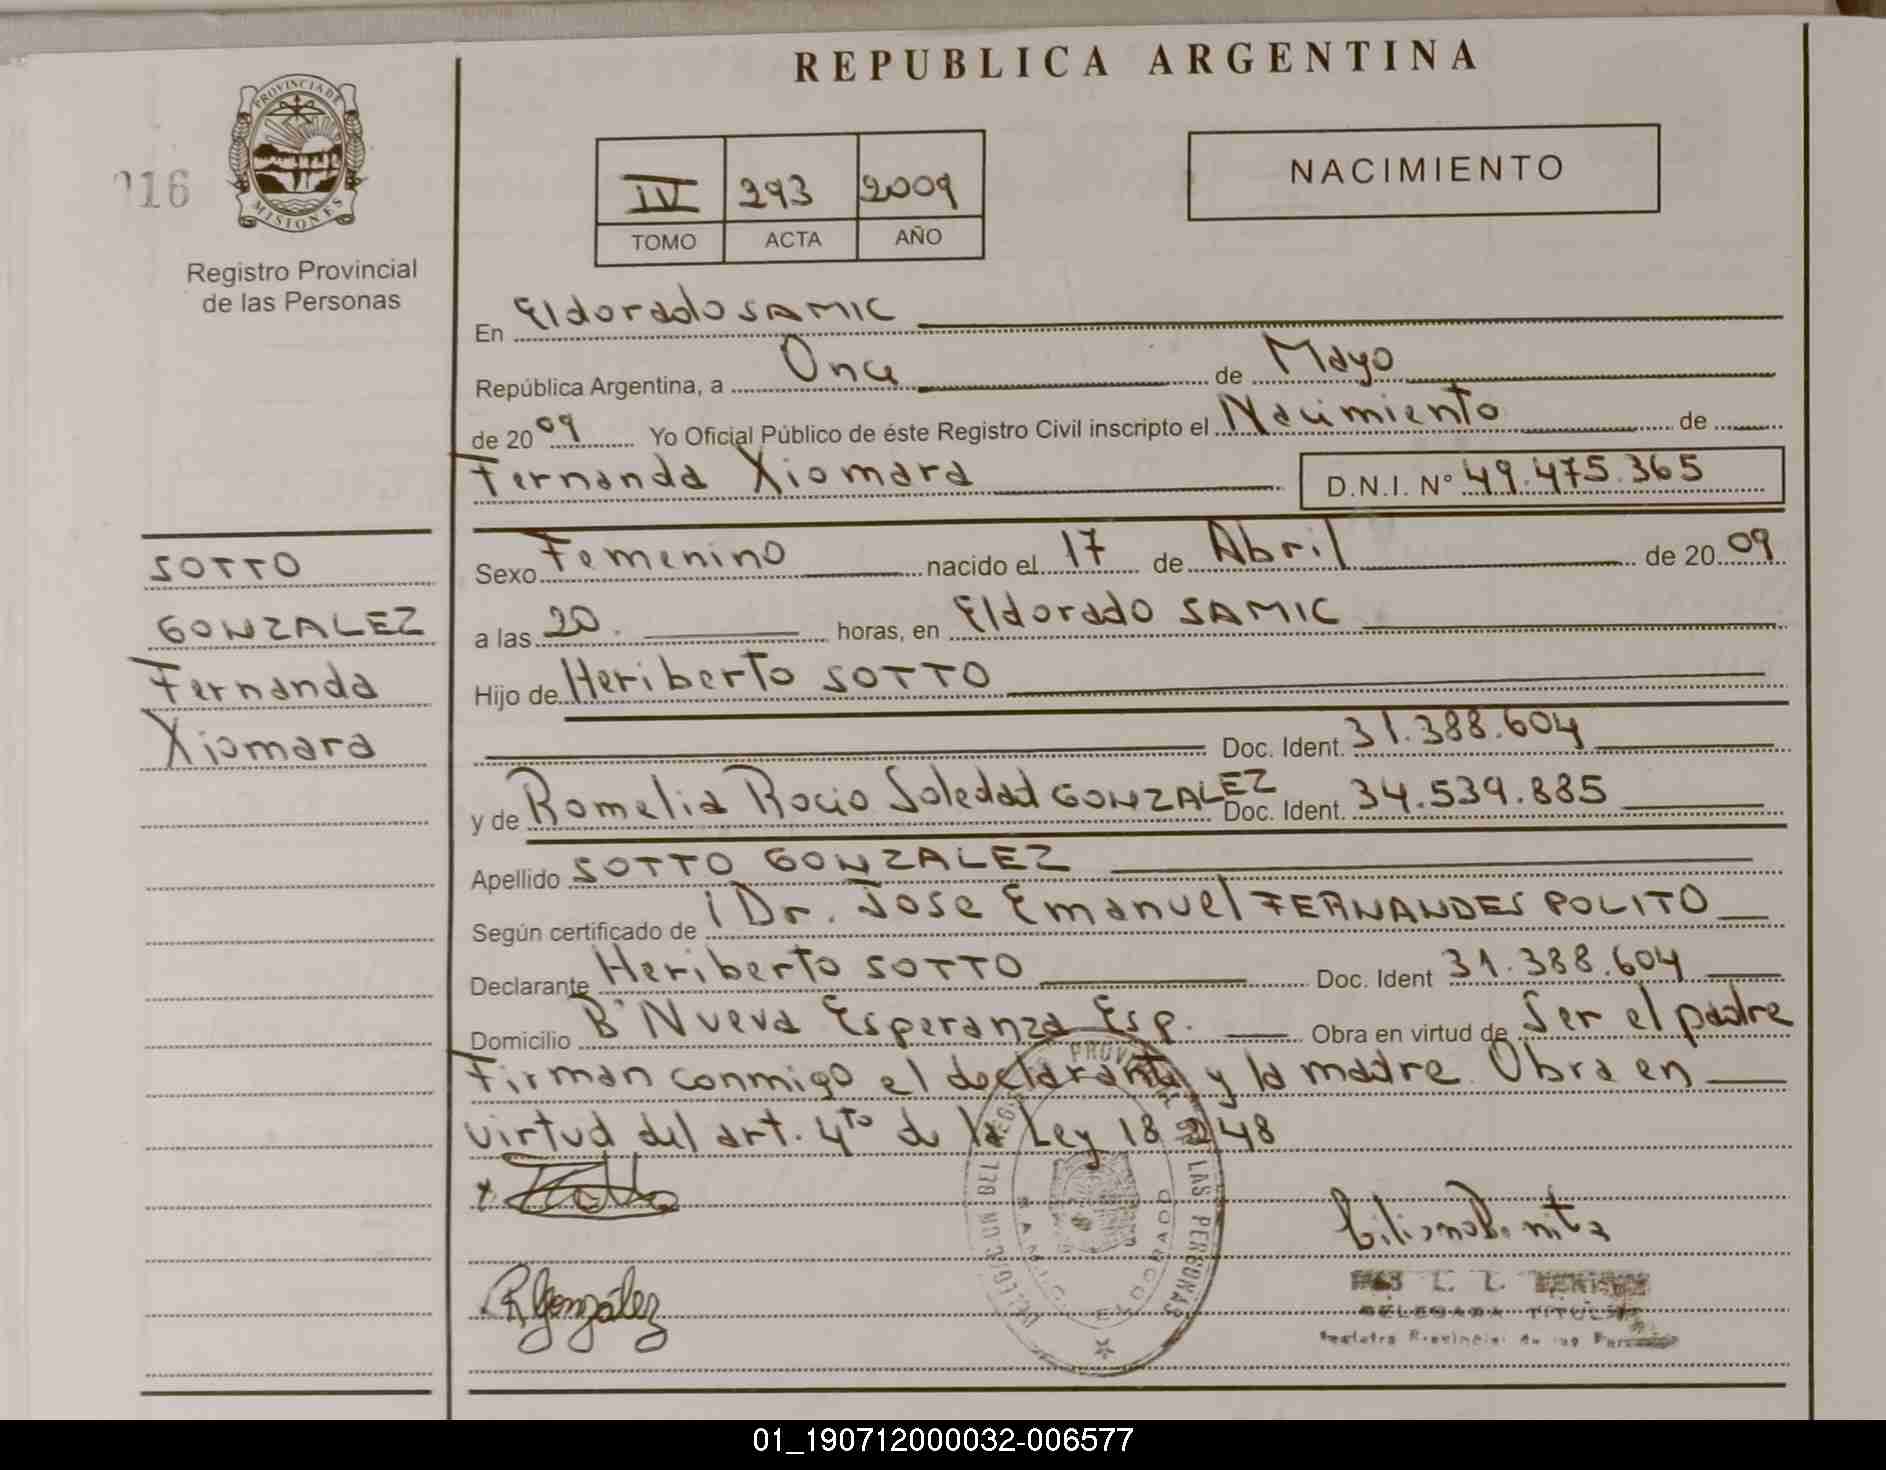 REPUBLICA ARGENTINA
PROVINCIA DE MISIONES
Registro Provincial
de las Personas
IV 293 2009
TOMO ACTA AÑO
NACIMIENTO
En Eldorado SAMIC
República Argentina, a Once de Mayo
de 2009 Yo Oficial Público de éste Registro Civil inscripto el Nacimiento de
Fernanda Xiomara D.N.I. N° 49.475.365
SOTTO
GONZALEZ
Fernanda
Xiomara
Sexo Femenino nacido el 17 de Abril de 2009
a las 20. horas, en Eldorado SAMIC
Hijo de Heriberto SOTTO
Doc. Ident. 31.388.604
y de Romelia Rocio Soledad GONZALEZ Doc. Ident. 34.539.885
Apellido SOTTO GONZALEZ
Según certificado de Dr. Jose Emanuel FERNANDES POLITO
Declarante Heriberto SOTTO Doc. Ident 31.388.604
Domicilio B° Nueva Esperanza Esp. Obra en virtud de Ser el padre
Firman conmigo el declarante y la madre. Obra en
virtud del art. 4to de la Ley 18248
R González
DELEGADA TITULAR
Registro Provincial de las Personas
01_190712000032-006577